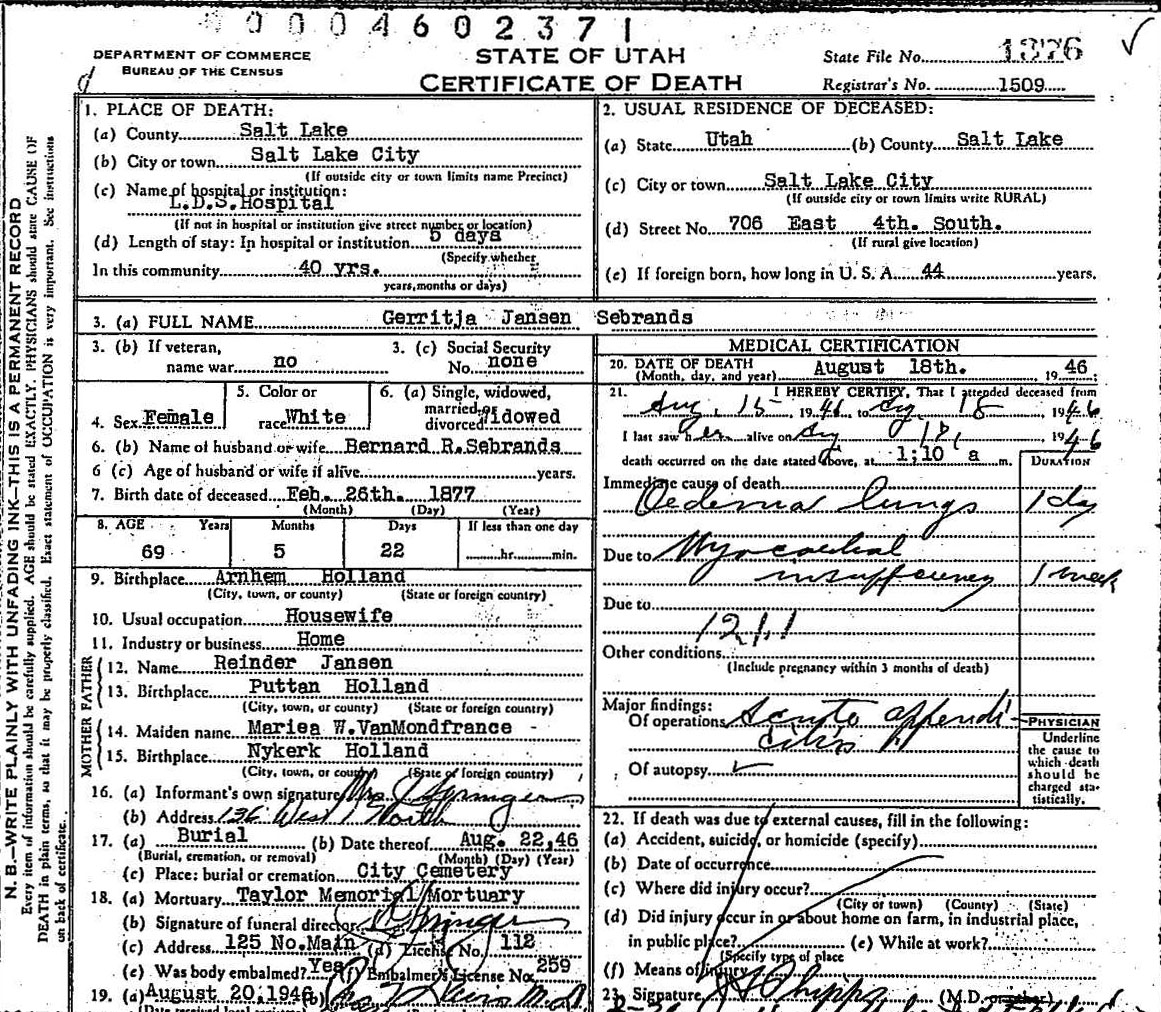 0004602371
DEPARTMENT OF COMMERCE
BUREAU OF THE CENSUS
STATE OF UTAH
CERTIFICATE OF DEATH
State File No. 1376
Registrar's No. 1509
N. B.—WRITE PLAINLY WITH UNFADING INK—THIS IS A PERMANENT RECORD
Every item of information should be carefully supplied. AGE should be stated EXACTLY. PHYSICIANS should state CAUSE OF
DEATH in plain terms, so that it may be properly classified. Exact statement of OCCUPATION is very important. See instructions
on back of certificate.
1. PLACE OF DEATH:
(a) County Salt Lake
(b) City or town Salt Lake City
(If outside city or town limits name Precinct)
(c) Name of hospital or institution:
L.D.S.Hospital
(If not in hospital or institution give street number or location)
(d) Length of stay: In hospital or institution 5 days
(Specify whether
In this community 40 yrs.
years, months or days)
2. USUAL RESIDENCE OF DECEASED:
(a) State Utah (b) County Salt Lake
(c) City or town Salt Lake City
(If outside city or town limits write RURAL)
(d) Street No. 706 East 4th. South.
(If rural give location)
(e) If foreign born, how long in U. S. A. 44 years.
3. (a) FULL NAME Gerritja Jansen Sebrands
3. (b) If veteran,
name war no
3. (c) Social Security
No. none
4. Sex Female
5. Color or
race White
6. (a) Single, widowed,
married, or
divorced Widowed
6. (b) Name of husband or wife Bernard R.Sebrands
6 (c) Age of husband or wife if alive years.
7. Birth date of deceased Feb. 26th. 1877
(Month) (Day) (Year)
8. AGE Years Months Days If less than one day
69 5 22 hr. min.
9. Birthplace Arnhem Holland
(City, town, or county) (State or foreign country)
10. Usual occupation Housewife
11. Industry or business Home
FATHER
12. Name Reinder Jansen
13. Birthplace Puttan Holland
(City, town, or county) (State or foreign country)
MOTHER
14. Maiden name Mariea W.VanMondfrance
15. Birthplace Nykerk Holland
(City, town, or county) (State or foreign country)
16. (a) Informant's own signature Mrs J Springer
(b) Address 136 West 1 North
17. (a) Burial (b) Date thereof Aug. 22,46
(Burial, cremation, or removal) (Month) (Day) (Year)
(c) Place: burial or cremation City Cemetery
18. (a) Mortuary Taylor Memorial Mortuary
(b) Signature of funeral director Springer
(c) Address 125 No.Main (d) License No. 112
(e) Was body embalmed? Yes (f) Embalmer's License No. 259
19. (a) August 20,1946 (b) M.D.
MEDICAL CERTIFICATION
20. DATE OF DEATH August 18th. 1946
(Month, day, and year)
21. I HEREBY CERTIFY, That I attended deceased from
Aug. 15 1946 to Aug 18 1946
I last saw her alive on Aug 18, 1946
death occurred on the date stated above, at 1:10 a m.
DURATION
Immediate cause of death
Oedema lungs 1 dy
Due to Myocardial
insufficiency 1 week
Due to
121.1
Other conditions
(Include pregnancy within 3 months of death)
Major findings:
Of operations Acute appendi-
citis
Of autopsy
PHYSICIAN
Underline
the cause to
which death
should be
charged sta-
tistically.
22. If death was due to external causes, fill in the following:
(a) Accident, suicide, or homicide (specify)
(b) Date of occurrence
(c) Where did injury occur?
(City or town) (County) (State)
(d) Did injury occur in or about home on farm, in industrial place,
in public place? (e) While at work?
(Specify type of place
(f) Means of injury
23. Signature Phipps (M.D. or other)